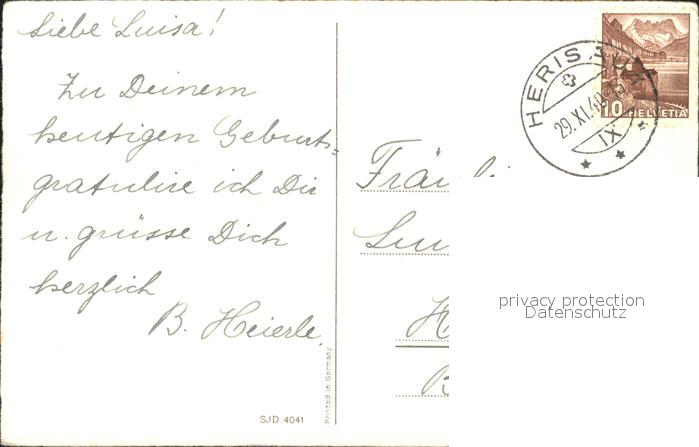 Liebe Luisa!
Zu Deinem
heutigen Geburts=
gratulire ich Dir
u. grüsse Dich
herzlich
B. Heierle.
SJD 4041
Printed in Germany
HERISAU
29.XI.40
IX
10 HELVETIA
privacy protection
Datenschutz